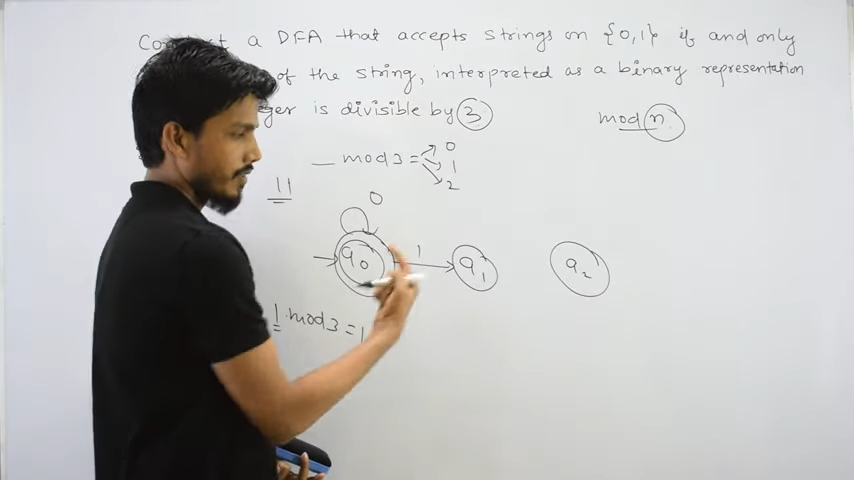 a DFA that accepts strings on {0,1} if and only
of the string, interpreted as a binary representation
is divisible by 3
mod n
mod 3 = 0
1
2
11
0
q0 1 q1 q2
1 mod 3 = 1